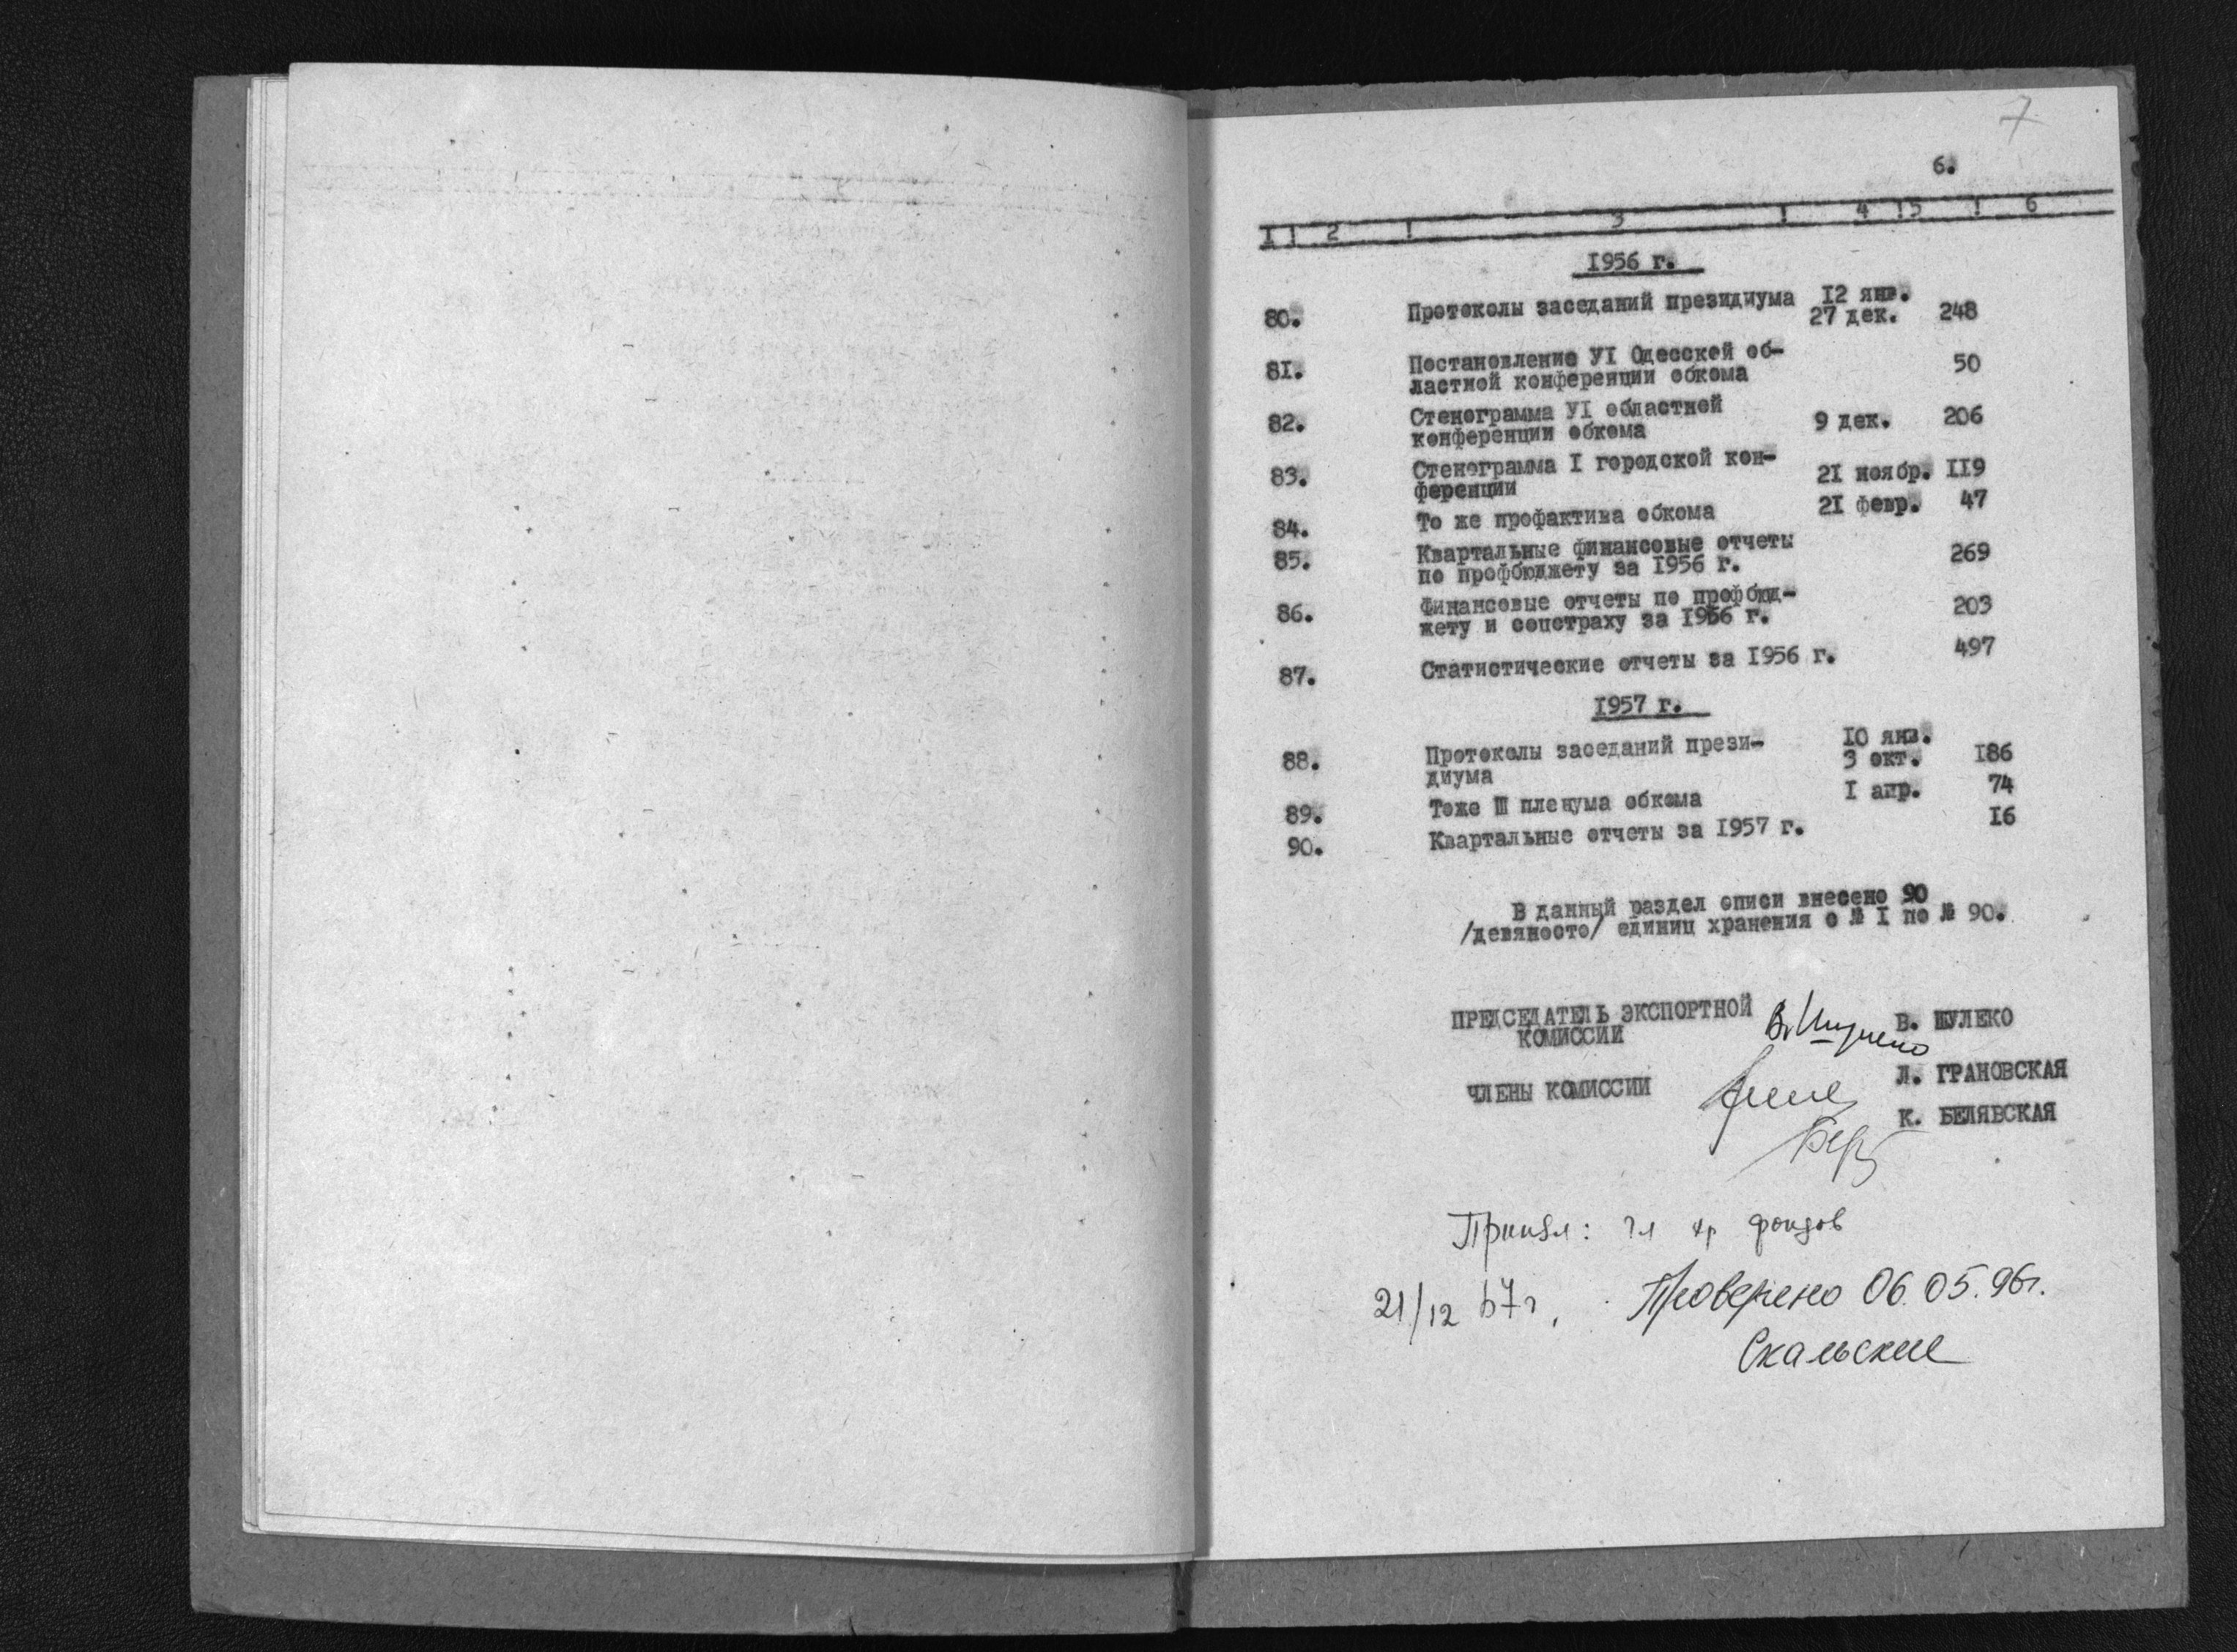 7
6.
I ! 2 ! 3 ! 4 ! 5 ! 6
1956 г.
80. Протоколы заседаний президиума 12 янв.
27 дек. 248
81. Постановление УI Одесской об-
ластной конференции обкома 50
82. Стенограмма УI областной
конференции обкома 9 дек. 206
83. Стенограмма I городской кон-
ференции 21 ноябр. 119
84. То же профактива обкома 21 февр. 47
85. Квартальные финансовые отчеты
по профбюджету за 1956 г. 269
86. Финансовые отчеты по профбюд-
жету и соцстраху за 1956 г. 203
87. Статистические отчеты за 1956 г. 497
1957 г.
88. Протоколы заседаний прези-
диума 10 янв.
3 окт. 186
89. Тоже III пленума обкома 1 апр. 74
90. Квартальные отчеты за 1957 г. 16
В данный раздел описи внесено 90
/девяносто/ единиц хранения с № I по № 90.
ПРЕДСЕДАТЕЛЬ ЭКСПОРТНОЙ
КОМИССИИ В. ШУЛЕКО
ЧЛЕНЫ КОМИССИИ Л. ГРАНОВСКАЯ
К. БЕЛЯВСКАЯ
Принял: гл хр фондов
21/12 67г.
Проверено 06.05.96г.